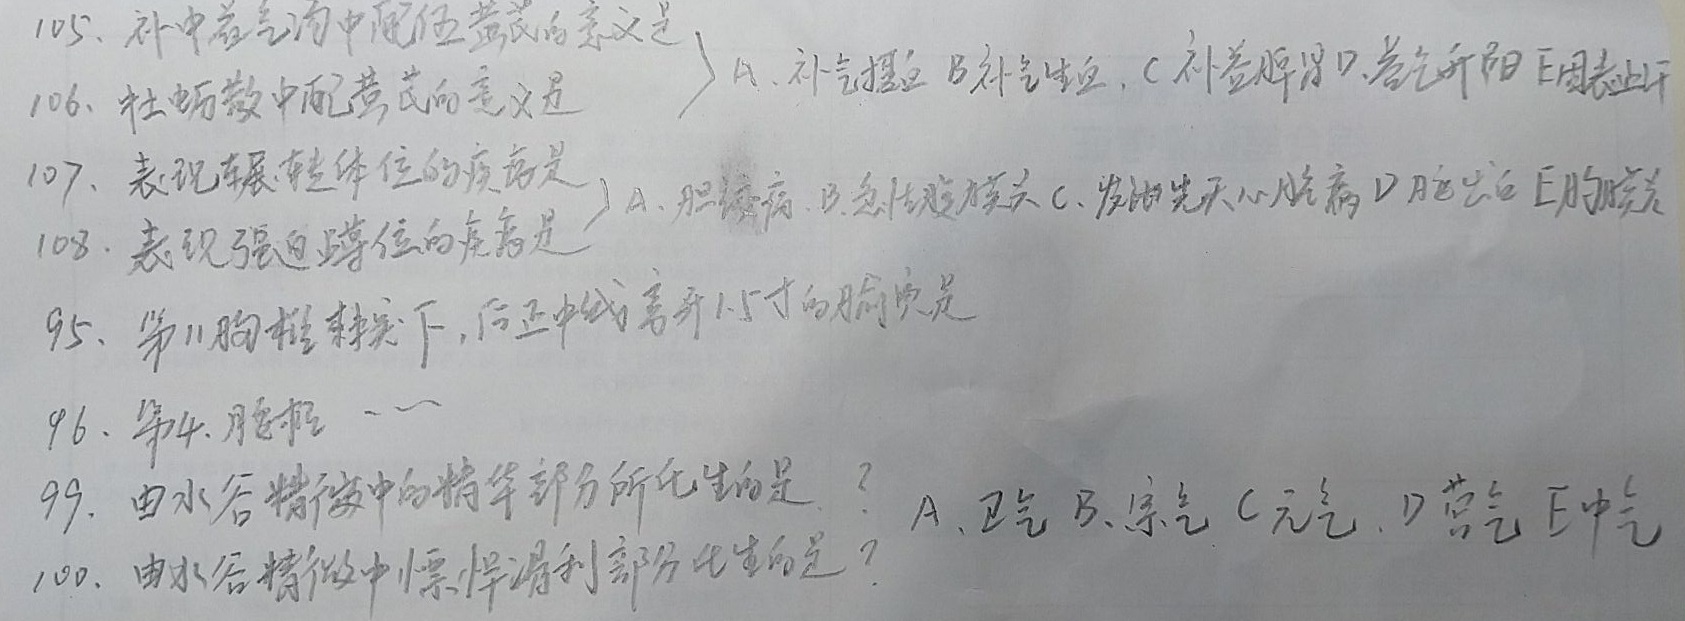 105、补中益气汤中配伍黄芪的意义是
106、牡蛎散中配黄芪的意义是
A、补气摄血 B补气生血、C补益脾胃 D、益气升阳 E固表止汗
107、表现辗转体位的疾病是
108、表现强迫蹲位的疾病是
A、胆绞痛、B.急性腹膜炎 C、发绀先天心脏病 D脑出血 E胸膜炎
95、第11胸椎棘突下，后正中线旁开1.5寸的腧穴是
96、第4、腰椎
99、由水谷精微中的精华部分所化生的是、？
A、卫气 B、宗气 C元气、D营气 E中气
100、由水谷精微中慓悍滑利部分化生的是？